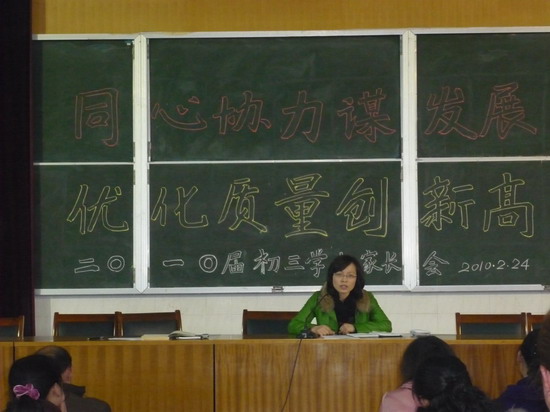 同心协力谋发展
优化质量创新高
二〇一〇届初三学生家长会 2010.2.24